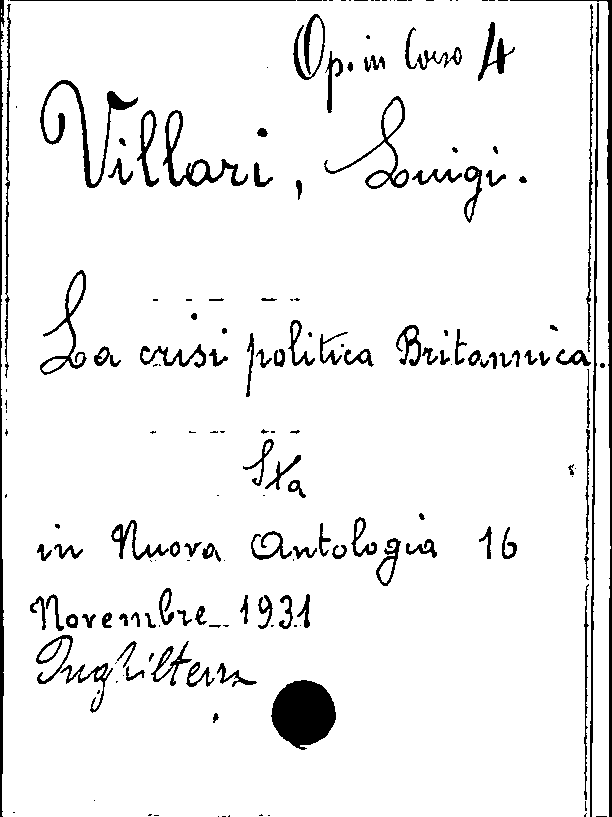 Op. in Corso 4
Villari, Luigi.
La crisi politica Britannica.
Sta
in Nuova Antologia 16
Novembre 1931
Inghilterra